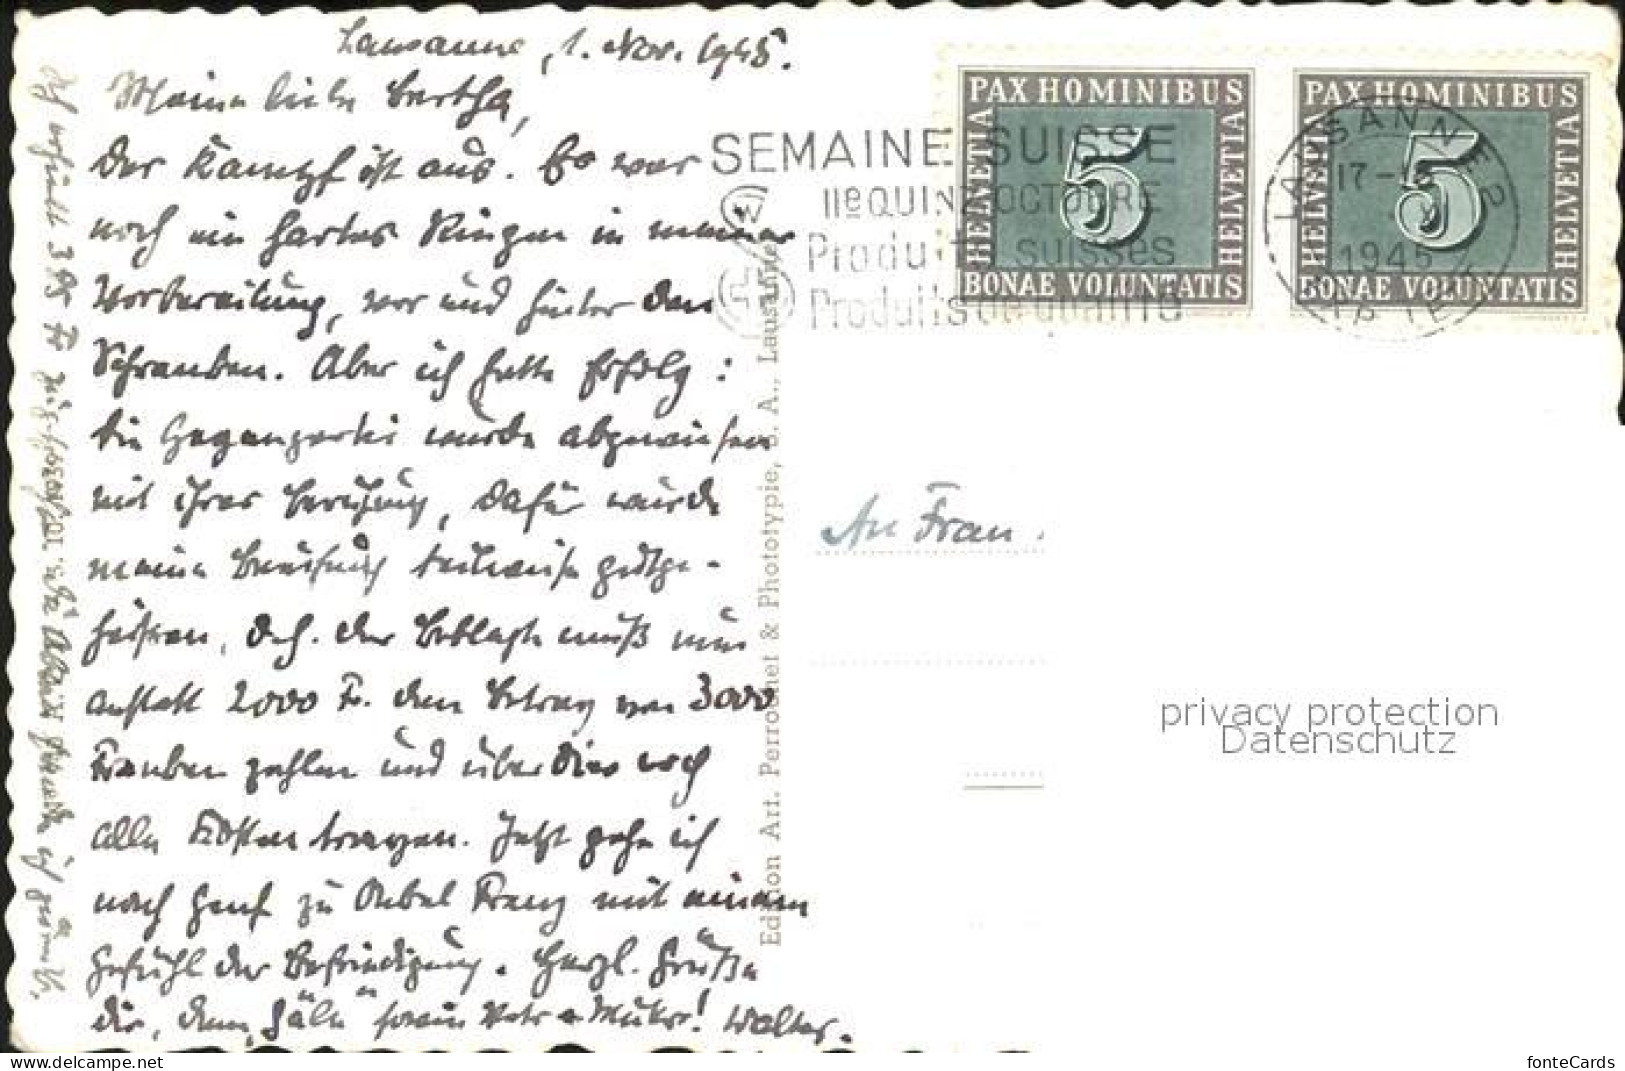 Lausanne, 1. Nov. 1945.
Meine liebe Bertha,
der Kampf ist aus. Es war
noch ein hartes Ringen in meiner
Vorbereitung, vor und hinter den
Schranken. Aber ich hatte Erfolg:
die Gegenpartei wurde abgewiesen
mit ihrer Berufung, dafür wurde
meine Berufung teilweise gutge-
heissen, d.h. der Beklagte muß nun
anstatt 2000 Fr. den Betrag von 3000
Franken zahlen und überdies noch
alle Kosten tragen. Jetzt gehe ich
nach Genf zu Onkel Franz mit einem
Gefühl der Befriedigung. Herzl. Grüße
dir, dem "Säli" sowie Vater u. Mutter! Walter.
PAX HOMINIBUS
HELVETIA
5
HELVETIA
BONAE VOLUNTATIS
PAX HOMINIBUS
HELVETIA
5
HELVETIA
BONAE VOLUNTATIS
SEMAINE SUISSE
IIe QUINZ OCTOBRE
Produits suisses
Produits de qualité
LAUSANNE 2
17-18
1945
Edition Art. Perrochet & Phototypie, S. A., Lausanne
An Frau.
privacy protection
Datenschutz
delcampe.net
fonteCards